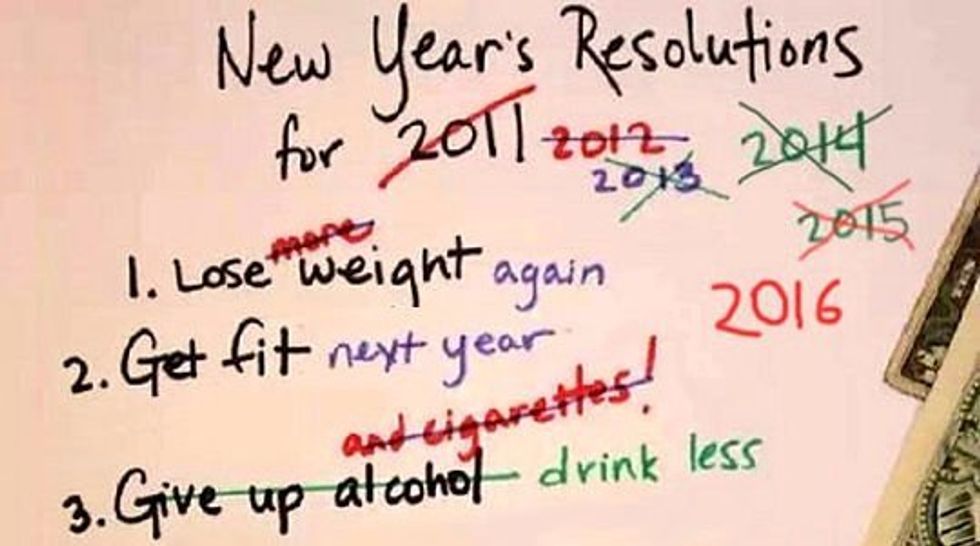 New Year's Resolutions
for 2011 2012 2014
2013
2015
more
1. Lose weight again
2016
2. Get fit next year
and cigarettes!
3. Give up alcohol drink less